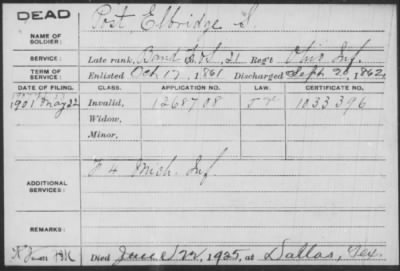 DEAD
Post, Elbridge S.
NAME OF SOLDIER:
SERVICE: Late rank, Band F. & S., 21 Regt Ohio Inf.
TERM OF SERVICE: Enlisted Oct 17, 1861 Discharged Sept. 20, 1862
DATE OF FILING. CLASS. APPLICATION NO. LAW. CERTIFICATE NO.
1901 May 22 Invalid, 1268708 1033396
Widow,
Minor,
F 4 Mich. Inf.
ADDITIONAL SERVICES:
REMARKS:
Died June 22, 1925, at Dallas, Tex.